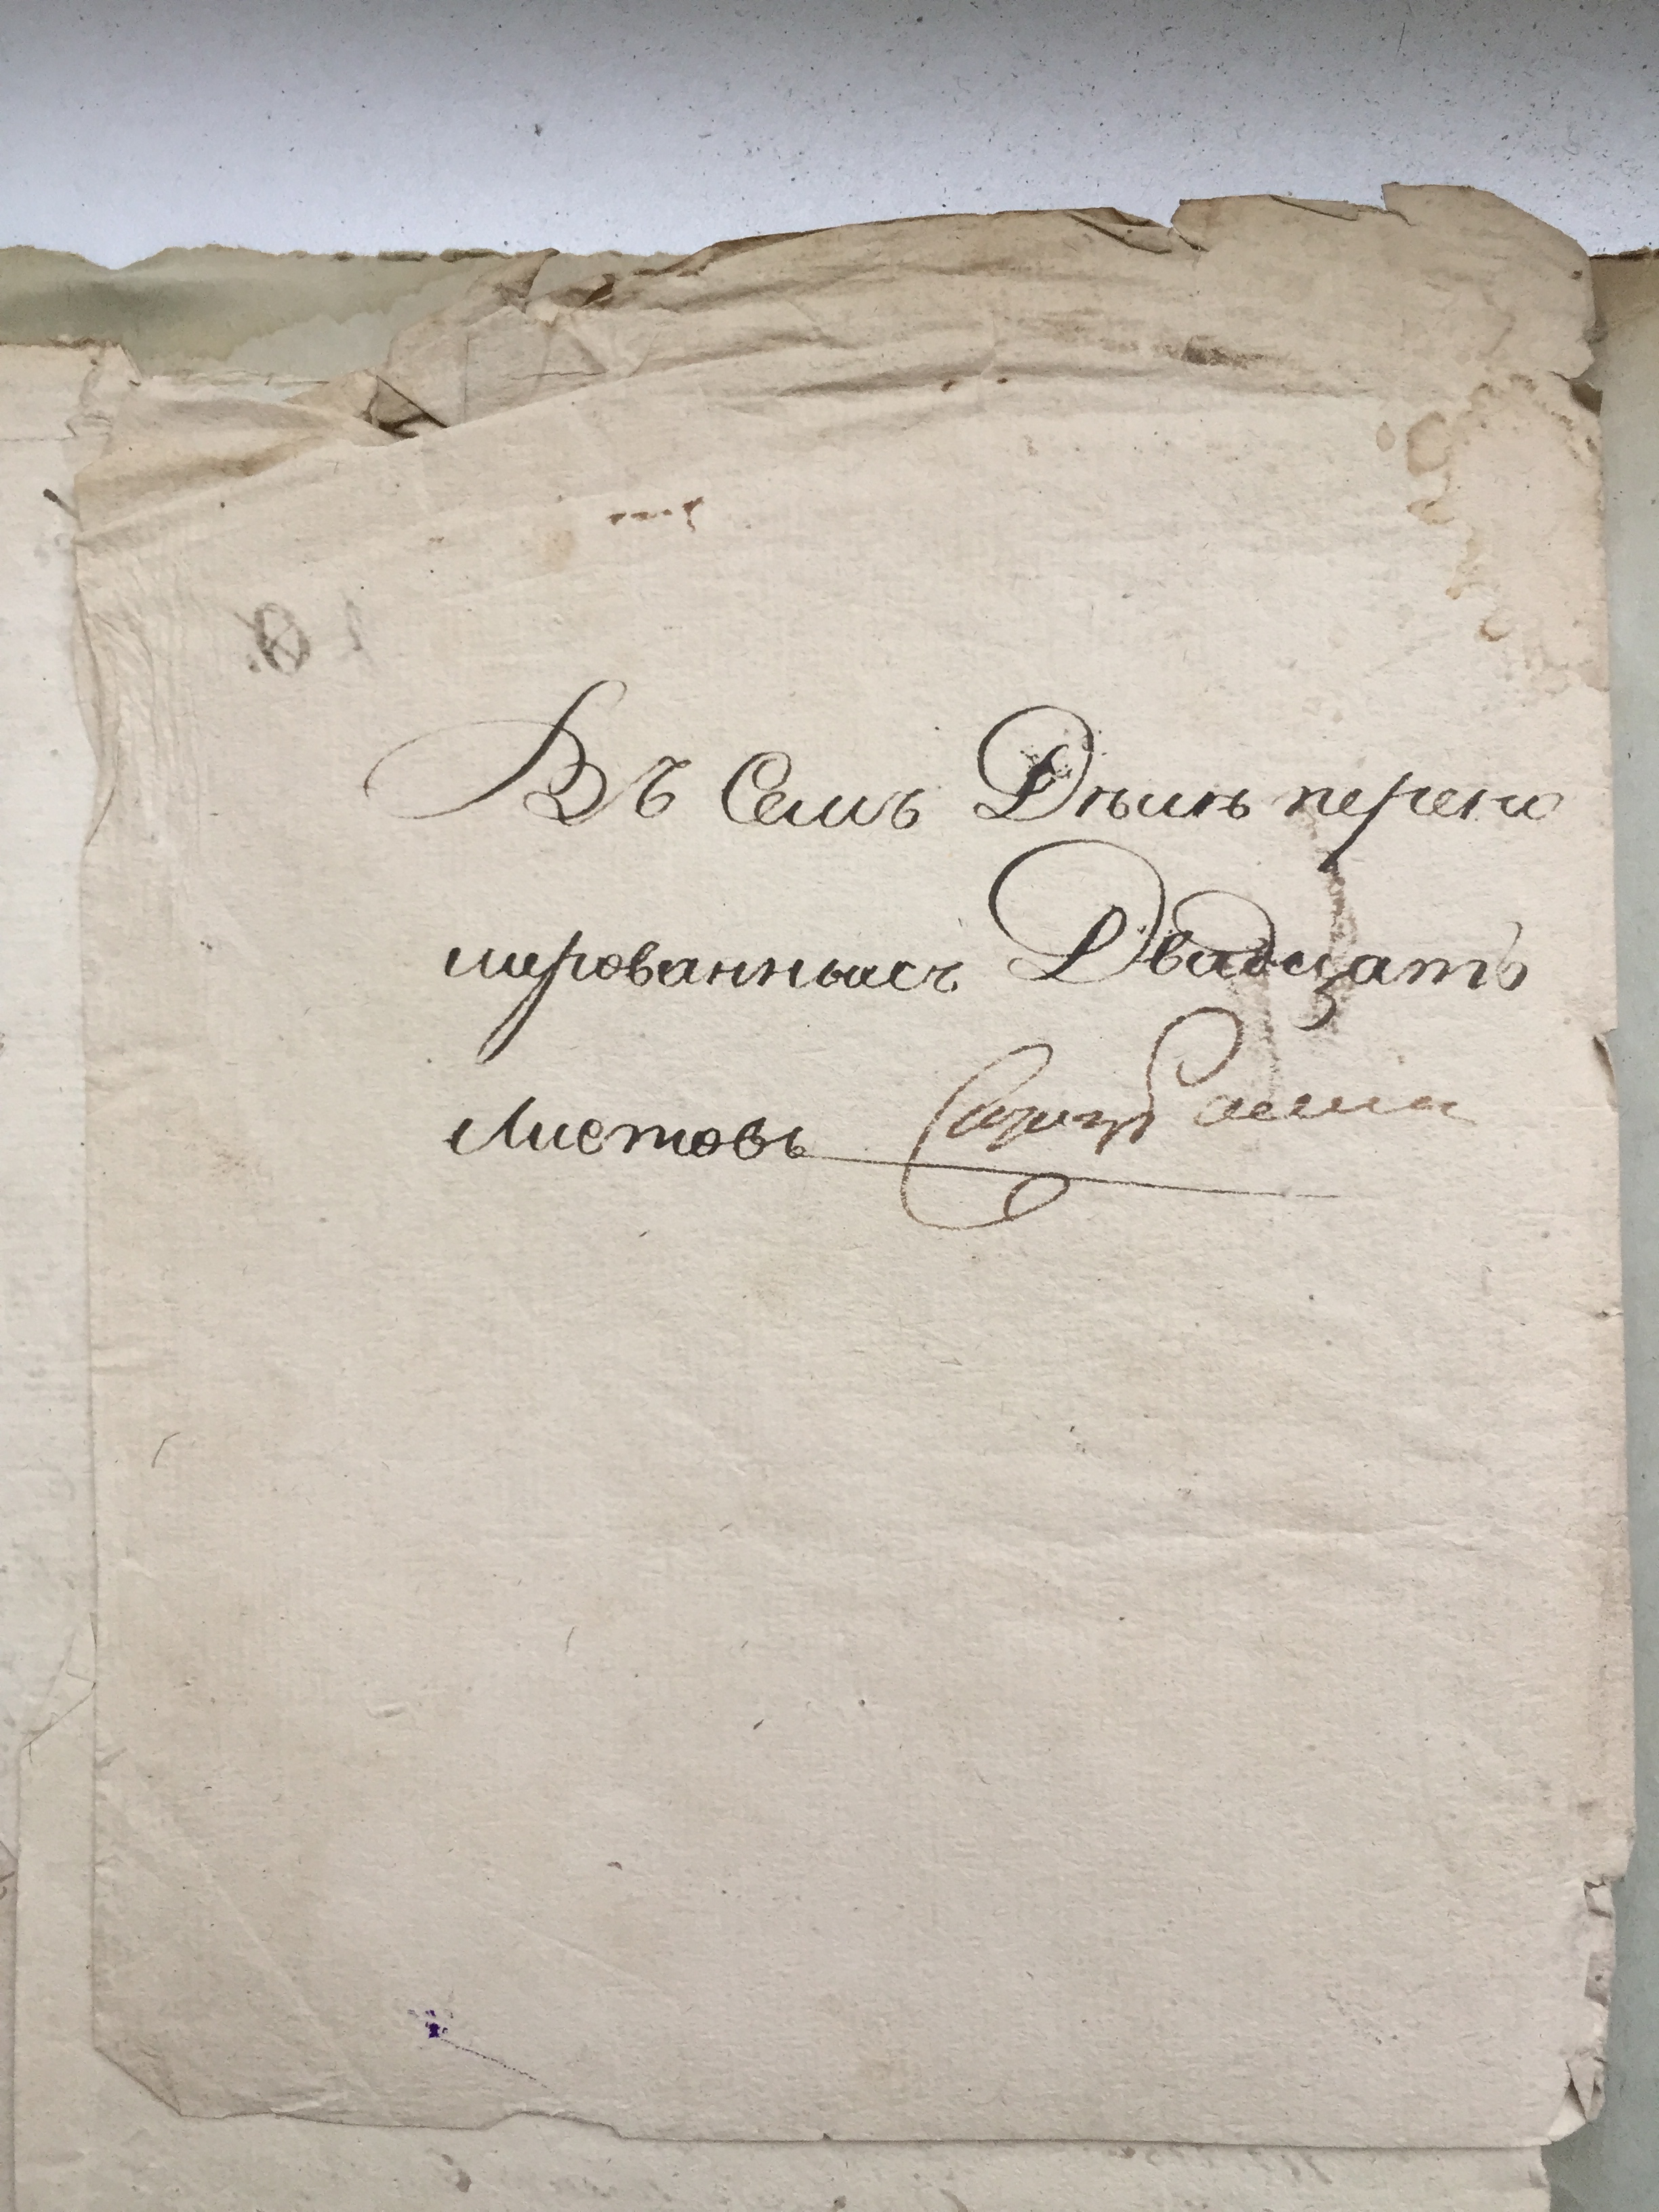 Въ Семъ Дѣлѣ перено
мированныхъ Двадцать
листовъ